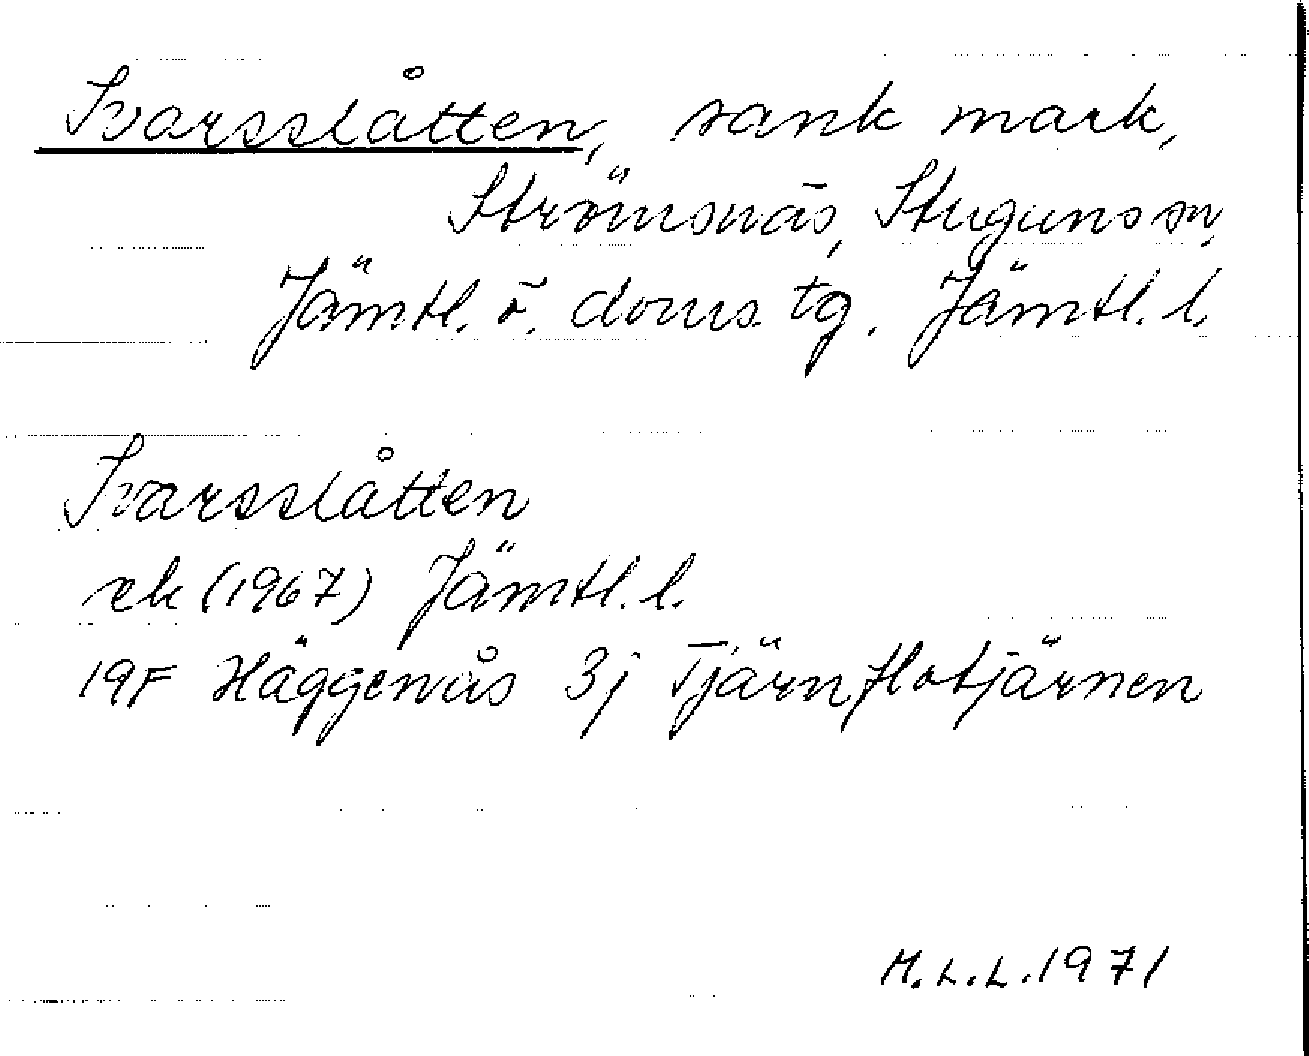 Ivarsslåtten, sank mark,
Strömsnäs, Stuguns sn,
Jämtl. ö. doms tg. Jämtl. l.
Ivarsslåtten
ek (1967) Jämtl. l.
19F Häggenås 3j Tjärnflotjärnen
M.L.L. 1971